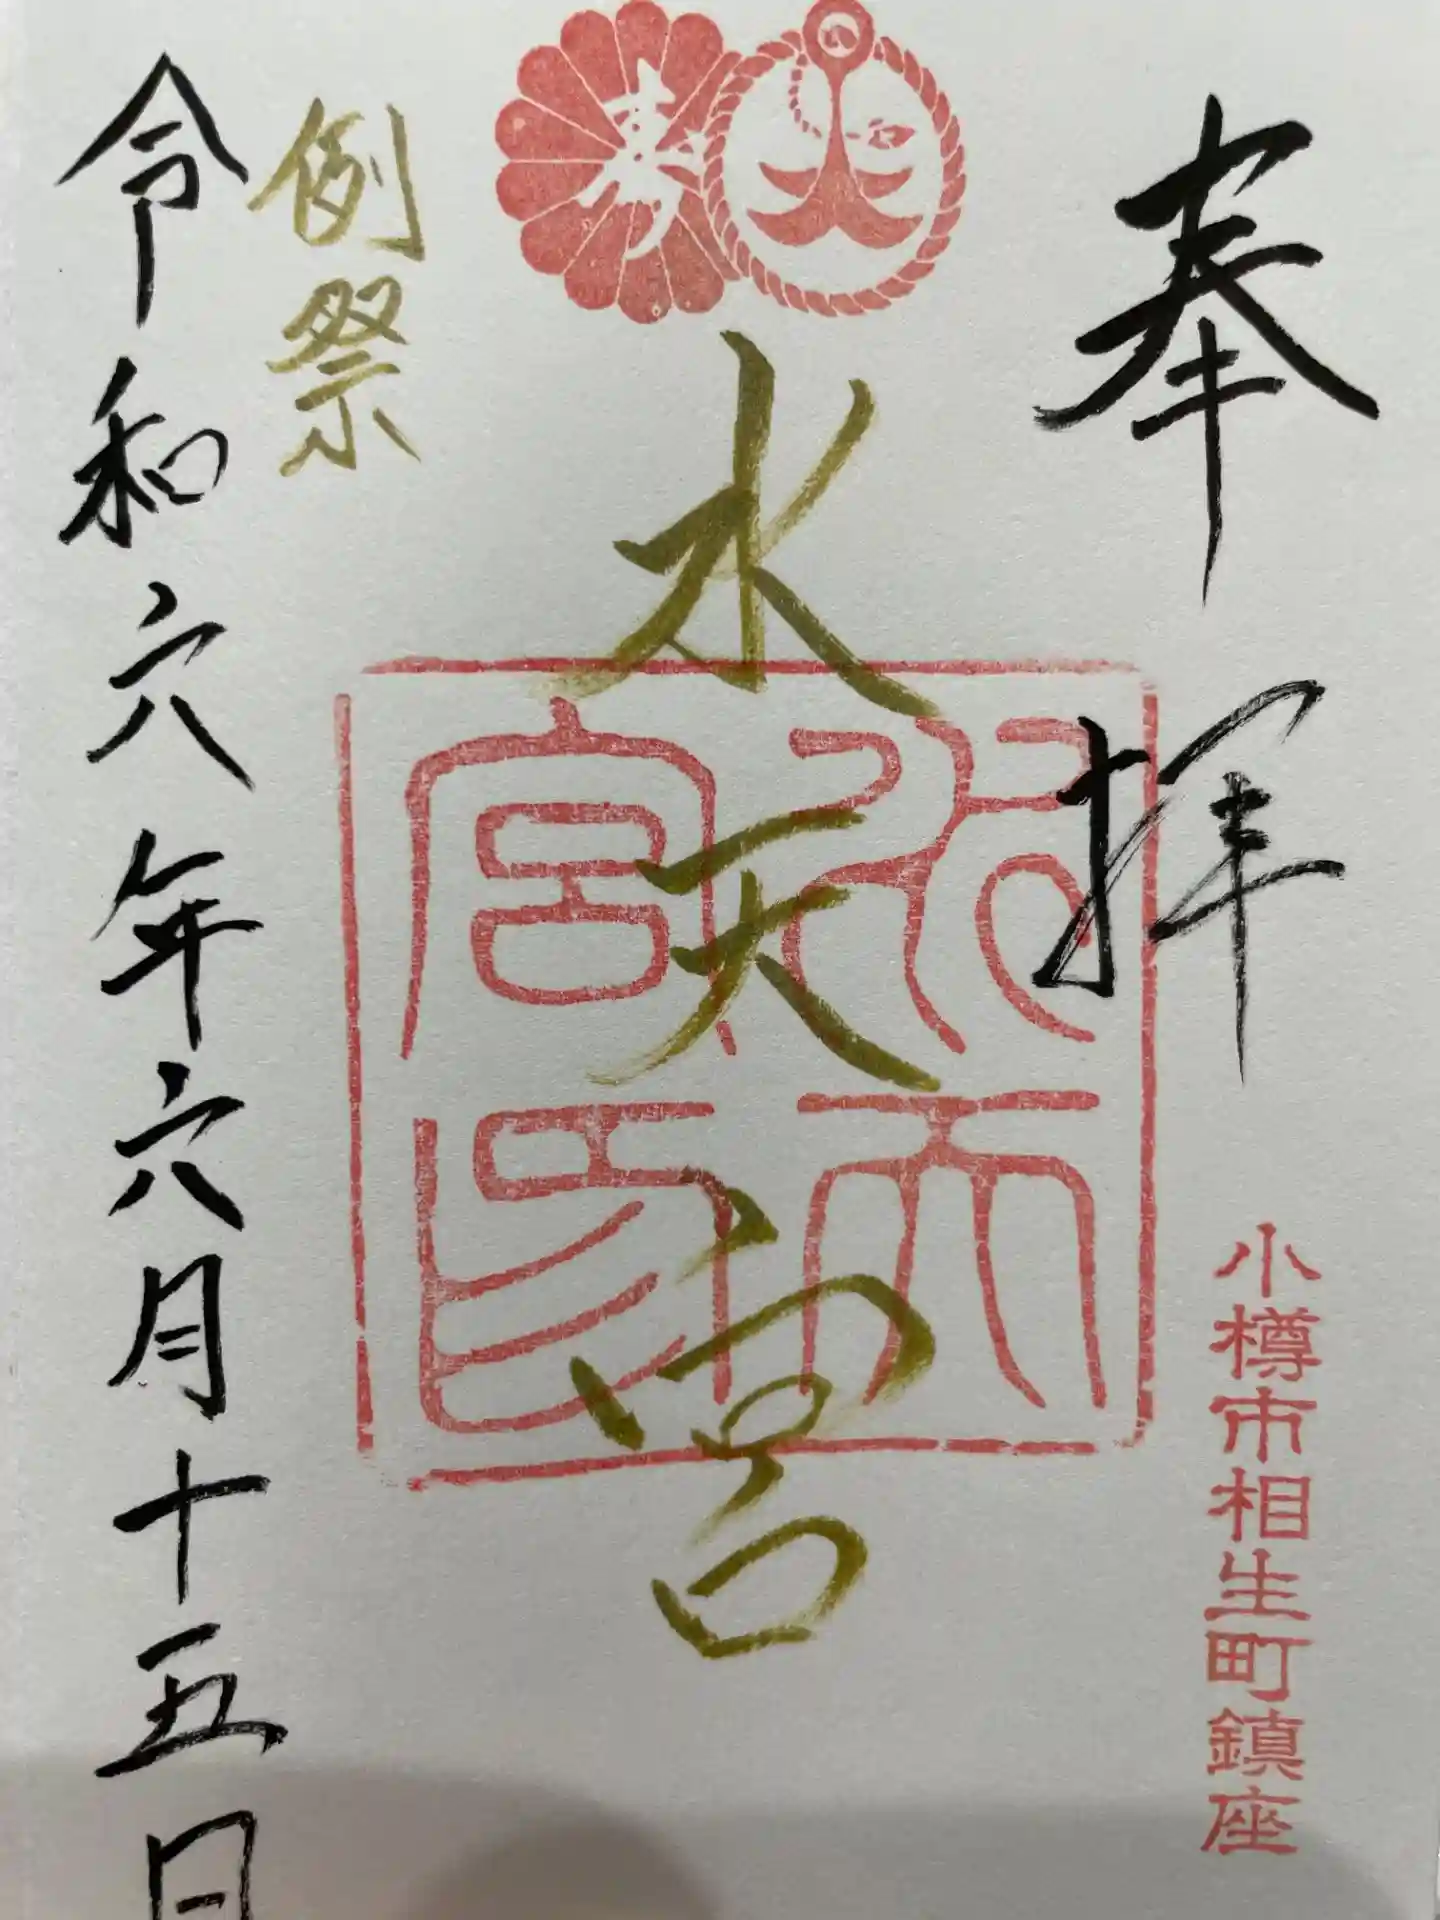 奉拝
小樽市相生町鎮座
水天宮
水天宮印
例祭
令和六年六月十五日